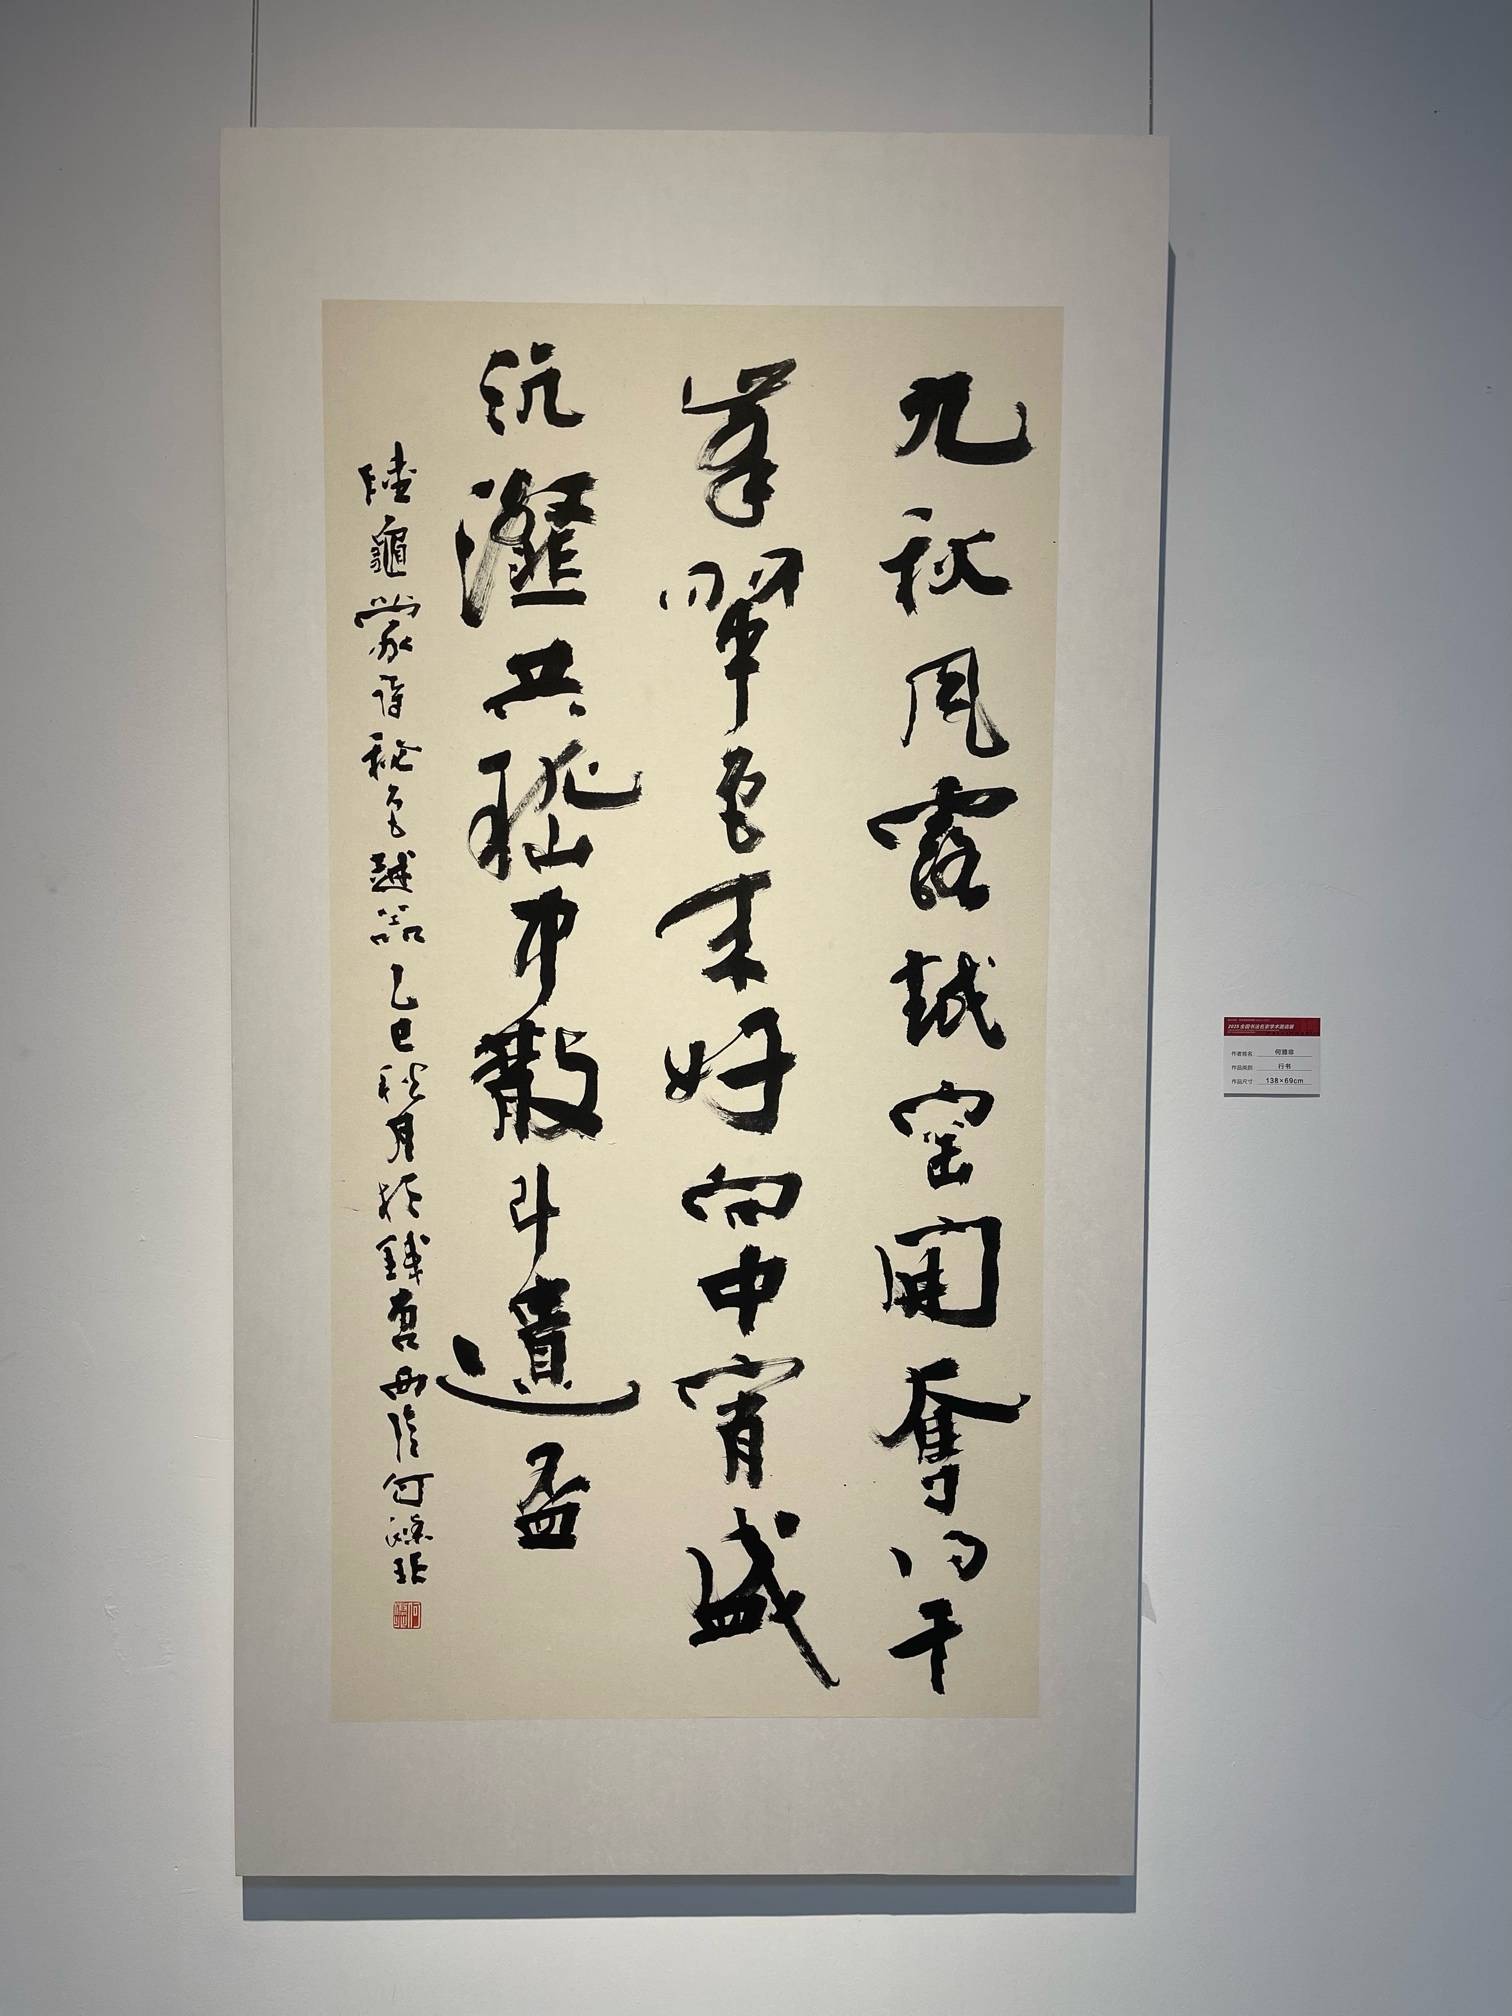 九秋风露越窑開奪得千
峯翠色来好向中宵盛
沆瀣共嵇中散斗遺盃
陸龜蒙诗秘色越器乙巳秋月於錢唐西陵何
2025全国书法名家学术邀请展
作者姓名 何雅非
作品类别 行书
作品尺寸 138×69cm